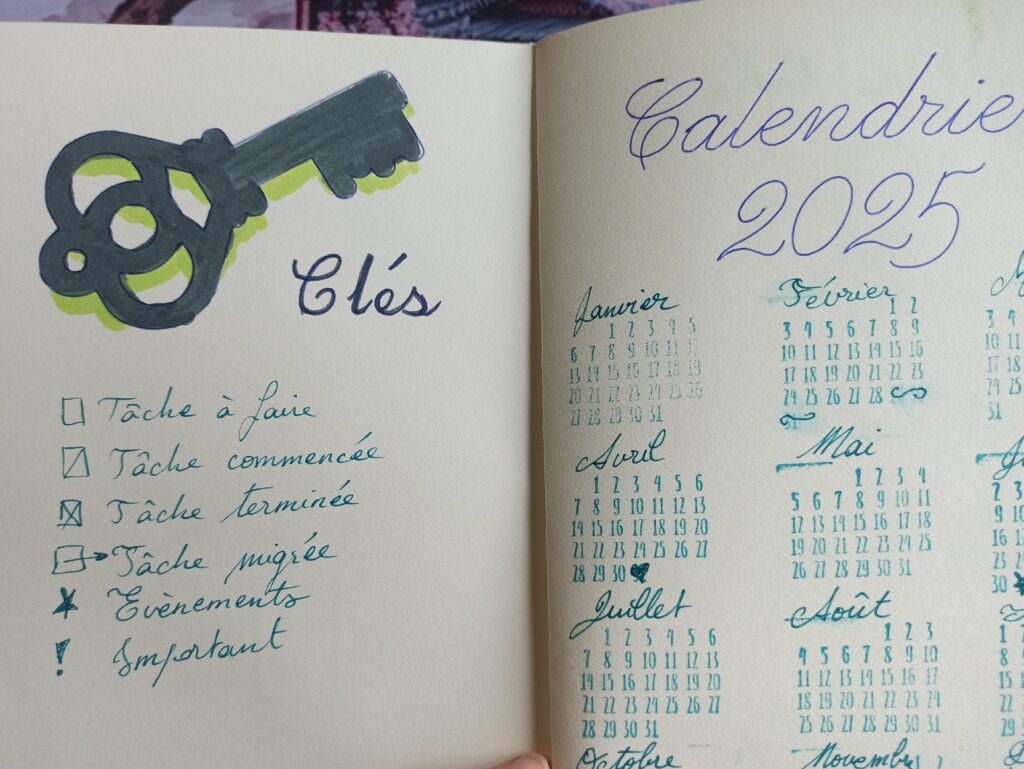 Clés
Tâche à faire
Tâche commencée
Tâche terminée
Tâche migrée
Evènements
! Important
Calendrie
2025
Janvier
1 2 3 4 5
6 7 8 9 10 11 12
13 14 15 16 17 18 19
20 21 22 23 24 25 26
27 28 29 30 31
Février
1 2
3 4 5 6 7 8 9
10 11 12 13 14 15 16
17 18 19 20 21 22 23
24 25 26 27 28
M
3 4
10 11
17 18
24 25
31
Avril
1 2 3 4 5 6
7 8 9 10 11 12 13
14 15 16 17 18 19 20
21 22 23 24 25 26 27
28 29 30
Mai
1 2 3 4
5 6 7 8 9 10 11
12 13 14 15 16 17 18
19 20 21 22 23 24 25
26 27 28 29 30 31
2 3
9 10
16 1
23
30
Juillet
1 2 3 4 5 6
7 8 9 10 11 12 13
14 15 16 17 18 19 20
21 22 23 24 25 26 27
28 29 30 31
Août
1 2 3
4 5 6 7 8 9 10
11 12 13 14 15 16 17
18 19 20 21 22 23 24
25 26 27 28 29 30 31
1
8
15
Octobre
Novembr
1 2